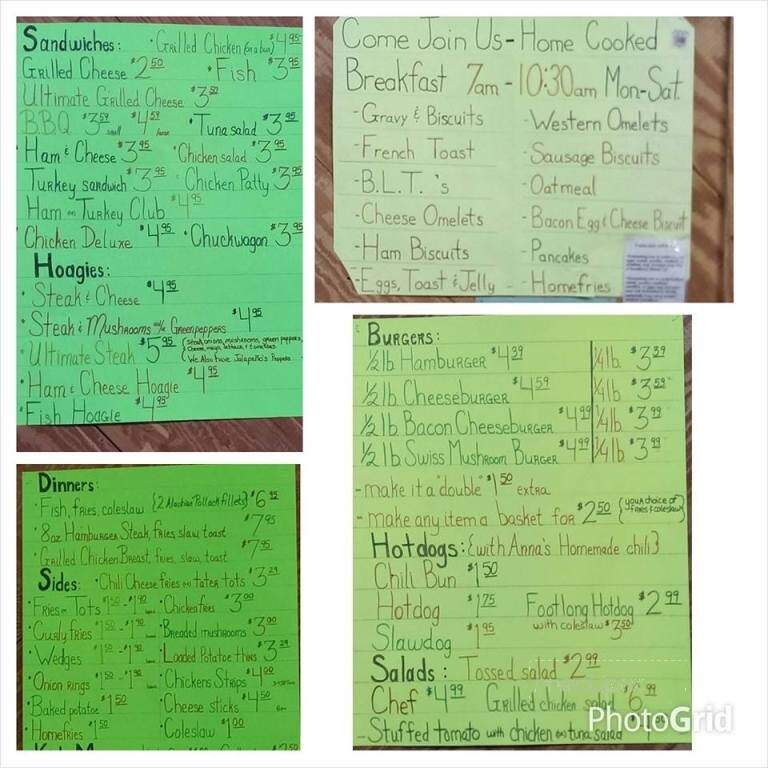 Sandwiches: · Grilled Chicken (on a bun) $4.95
Grilled Cheese $2.50 · Fish $3.95
Ultimate Grilled Cheese $3.50
B.B.Q $3.59 small $4.59 large
· Tuna salad $3.95
Ham & Cheese $3.95 · Chicken salad $3.95
Turkey sandwich $3.95 Chicken Patty $3.95
Ham or Turkey Club $4.95
Chicken Deluxe $4.95 · Chuckwagon $3.95
Hoagies:
· Steak & Cheese $4.95
· Steak & Mushrooms w/ Greenpeppers $4.95
· Ultimate Steak $5.95 {Steak, onions, mushrooms, green peppers,
cheese, mayo, lettuce, & tomatoes.
(We Also have Jalapeño's Peppers
· Ham & Cheese Hoagie $4.95
· Fish Hoagie $4.95
Come Join Us - Home Cooked
Breakfast 7am - 10:30am Mon-Sat.
- Gravy & Biscuits
- French Toast
- B.L.T.'s
- Cheese Omelets
- Ham Biscuits
- Eggs, Toast & Jelly -
- Western Omelets
- Sausage Biscuits
- Oatmeal
- Bacon Egg & Cheese Biscuit
- Pancakes
- Homefries
Dinners:
· Fish, fries, coleslaw {2 Alaskan Pollack fillets} $6.95
· 8oz Hamburger Steak, fries, slaw, toast $7.95
· Grilled Chicken Breast, fries, slaw, toast $7.95
Sides: · Chili Cheese fries or tater tots $3.29
· Fries or Tots $1.50 - $1.90 · Chicken fries $3.00
· Curly fries $1.50 - $1.90 · Breaded mushrooms $3.00
· Wedges $1.50 - $1.90 · Loaded Potatoe thins $3.29
· Onion rings $1.50 - $1.90 · Chicken Strips $4.00
· Baked potatoe $1.50 · Cheese sticks $4.50
· Homefries $1.50 · Coleslaw $1.00
Burgers:
1/2 lb Hamburger $4.39 1/4 lb. $3.39
1/2 lb Cheeseburger $4.59 1/4 lb. $3.59
1/2 lb Bacon Cheeseburger $4.99 1/4 lb. $3.99
1/2 lb Swiss Mushroom Burger $4.99 1/4 lb. $3.99
- make it a "double" $1.50 extra
- make any item a basket for $2.50 {your choice of
fries & coleslaw}
Hotdogs: {with Anna's Homemade chili}
Chili Bun $1.50
Hotdog $1.75 Footlong Hotdog $2.99
with coleslaw $3.50
Slawdog $1.95
Salads: Tossed salad $2.99
Chef $4.99 Grilled chicken salad $6.99
- Stuffed tomato with chicken or tuna salad
PhotoGrid